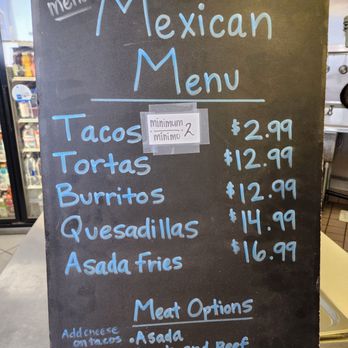 menu
Mexican
Menu
Tacos minimum minimo 2 $2.99
Tortas $12.99
Burritos $12.99
Quesadillas $14.99
Asada Fries $16.99
Meat Options
Add cheese
on tacos
• Asada
Beef